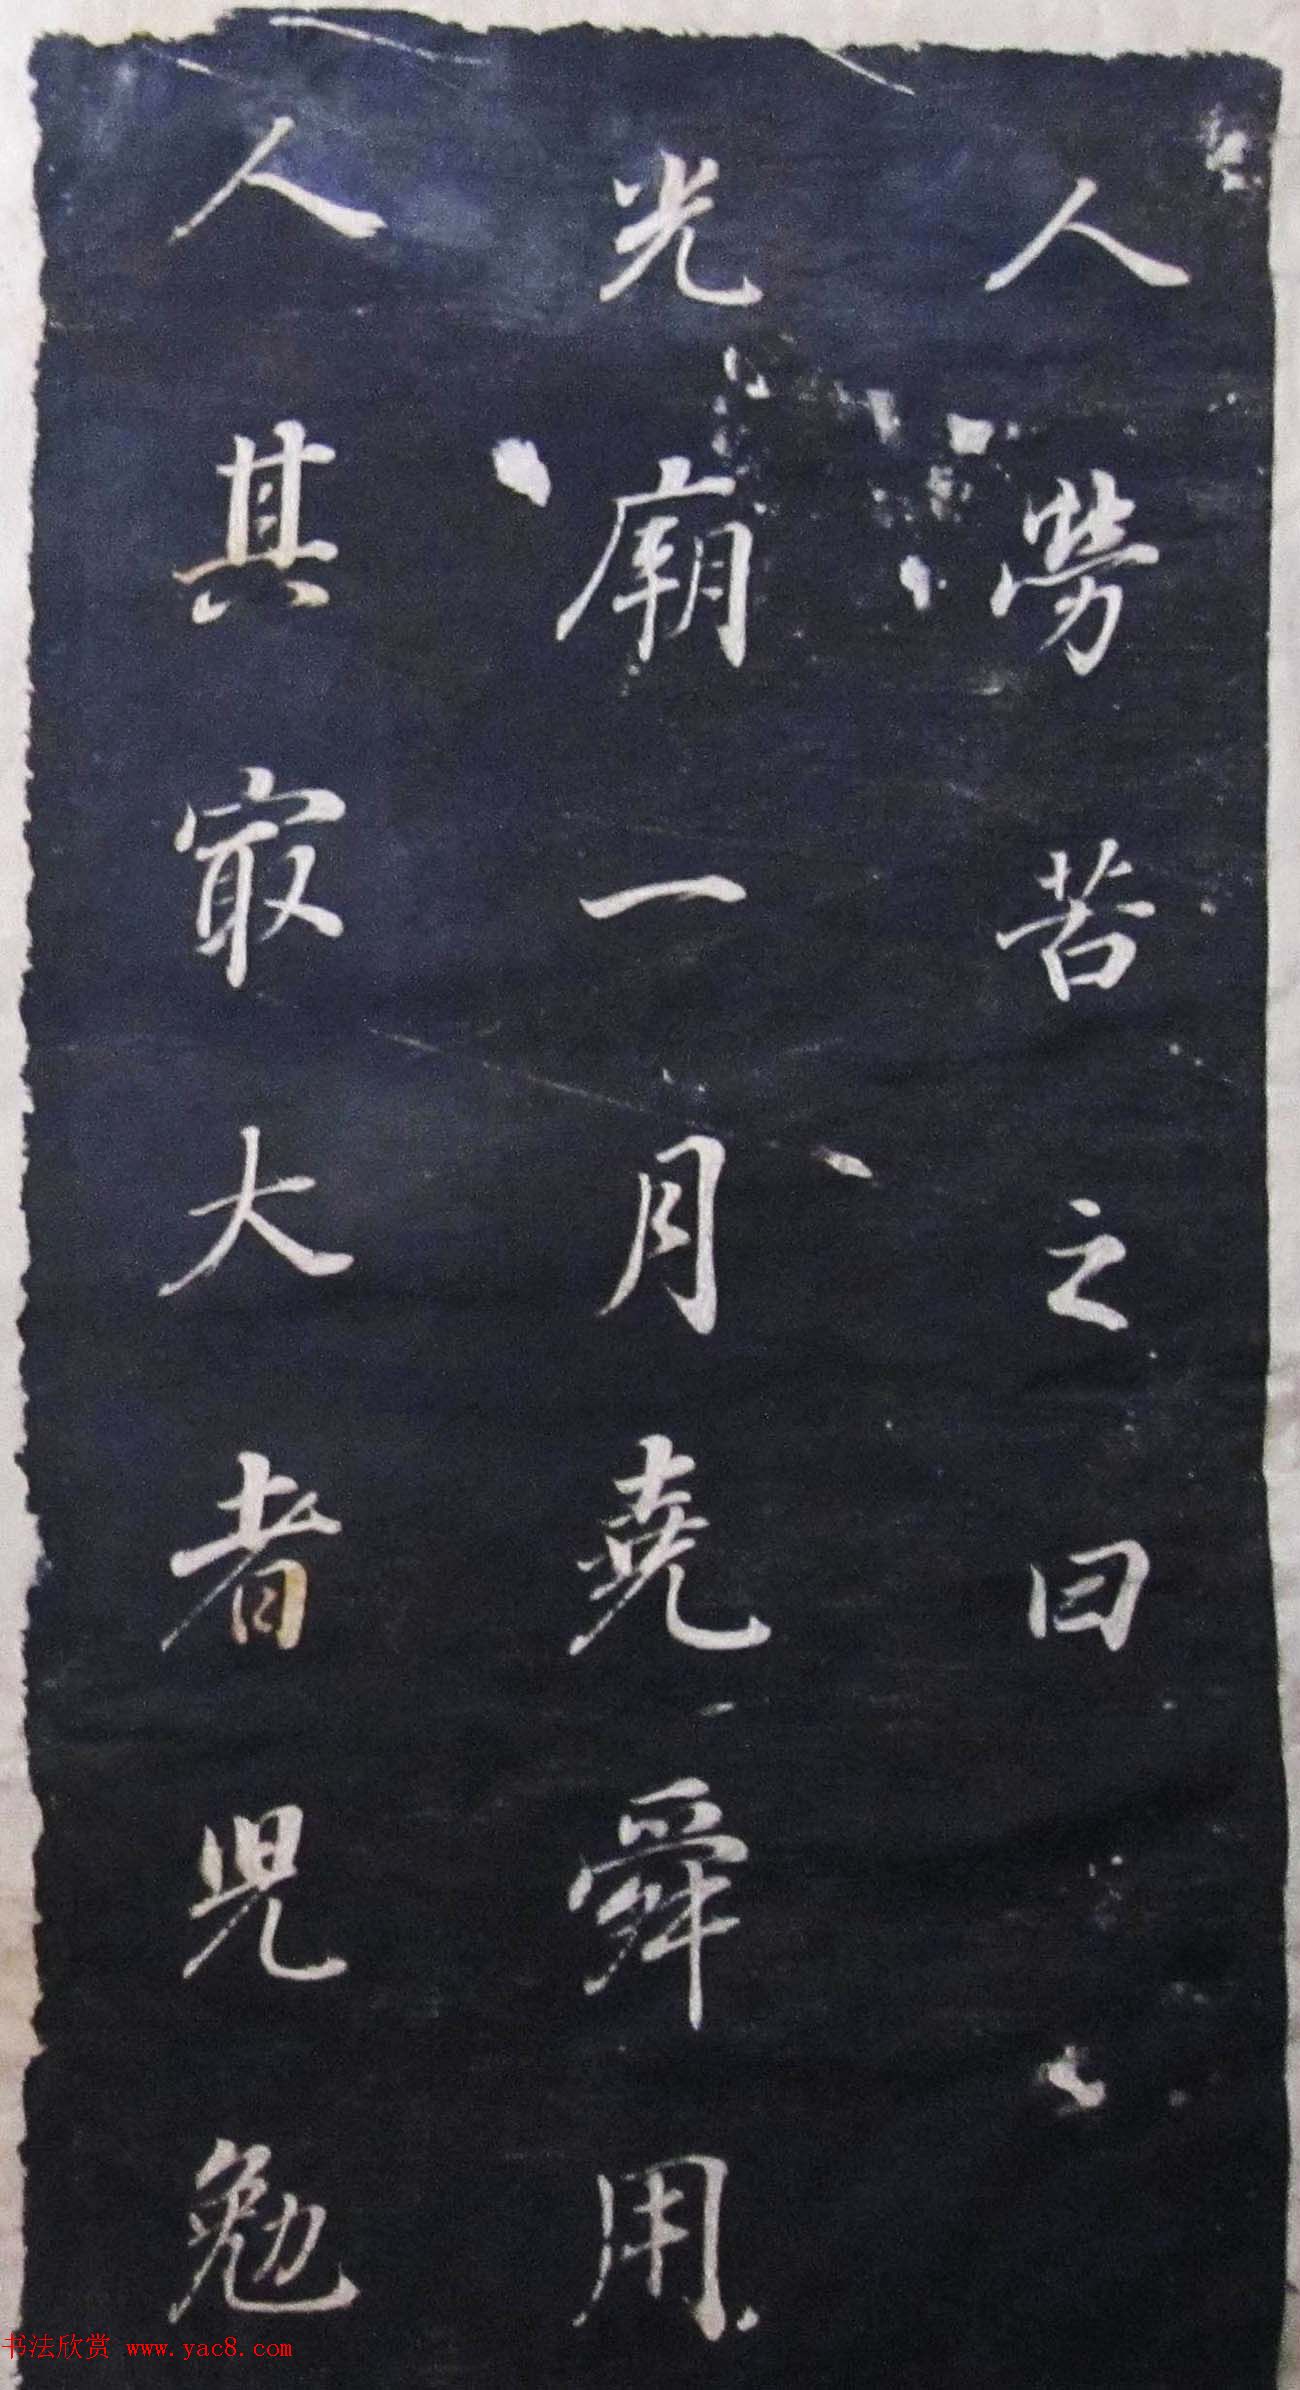 人勞苦之曰
光廟一月堯舜用
人其冣大者兒勉
书法欣赏 www.yac8.com